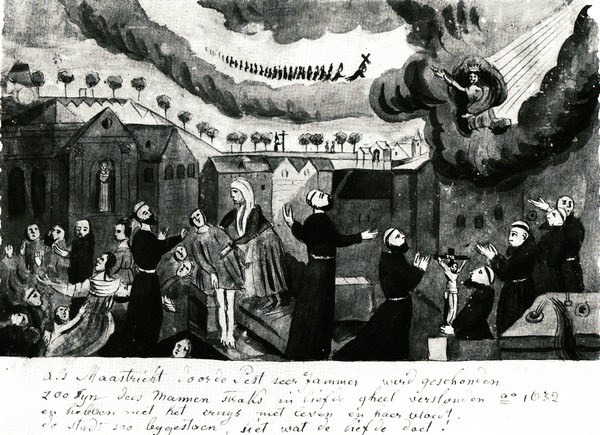 als Maastricht door de Pest seer Jammer werd geschonden
zoo syn dees Mannen straks in liefde gheel verslonden aº 1632
en hebben met het cruys met leven en haer bloed!
de stadt zoo bygestaen, siet wat de liefde doet!